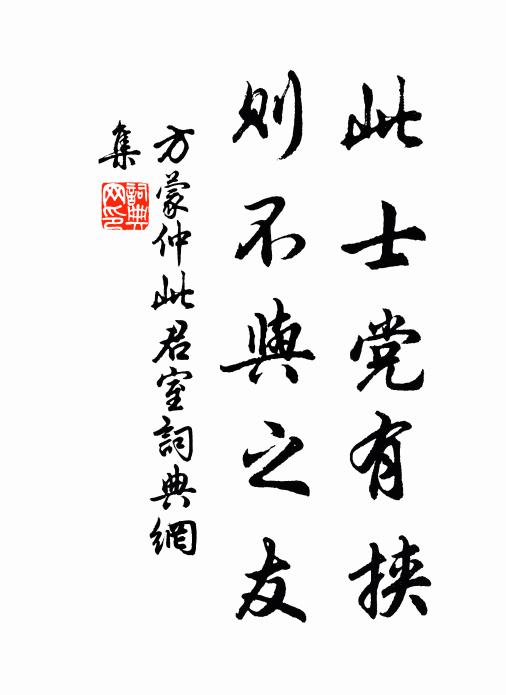 此士党有挟
則不與之友
方蒙仲此君室詞典網
集
詞典網印